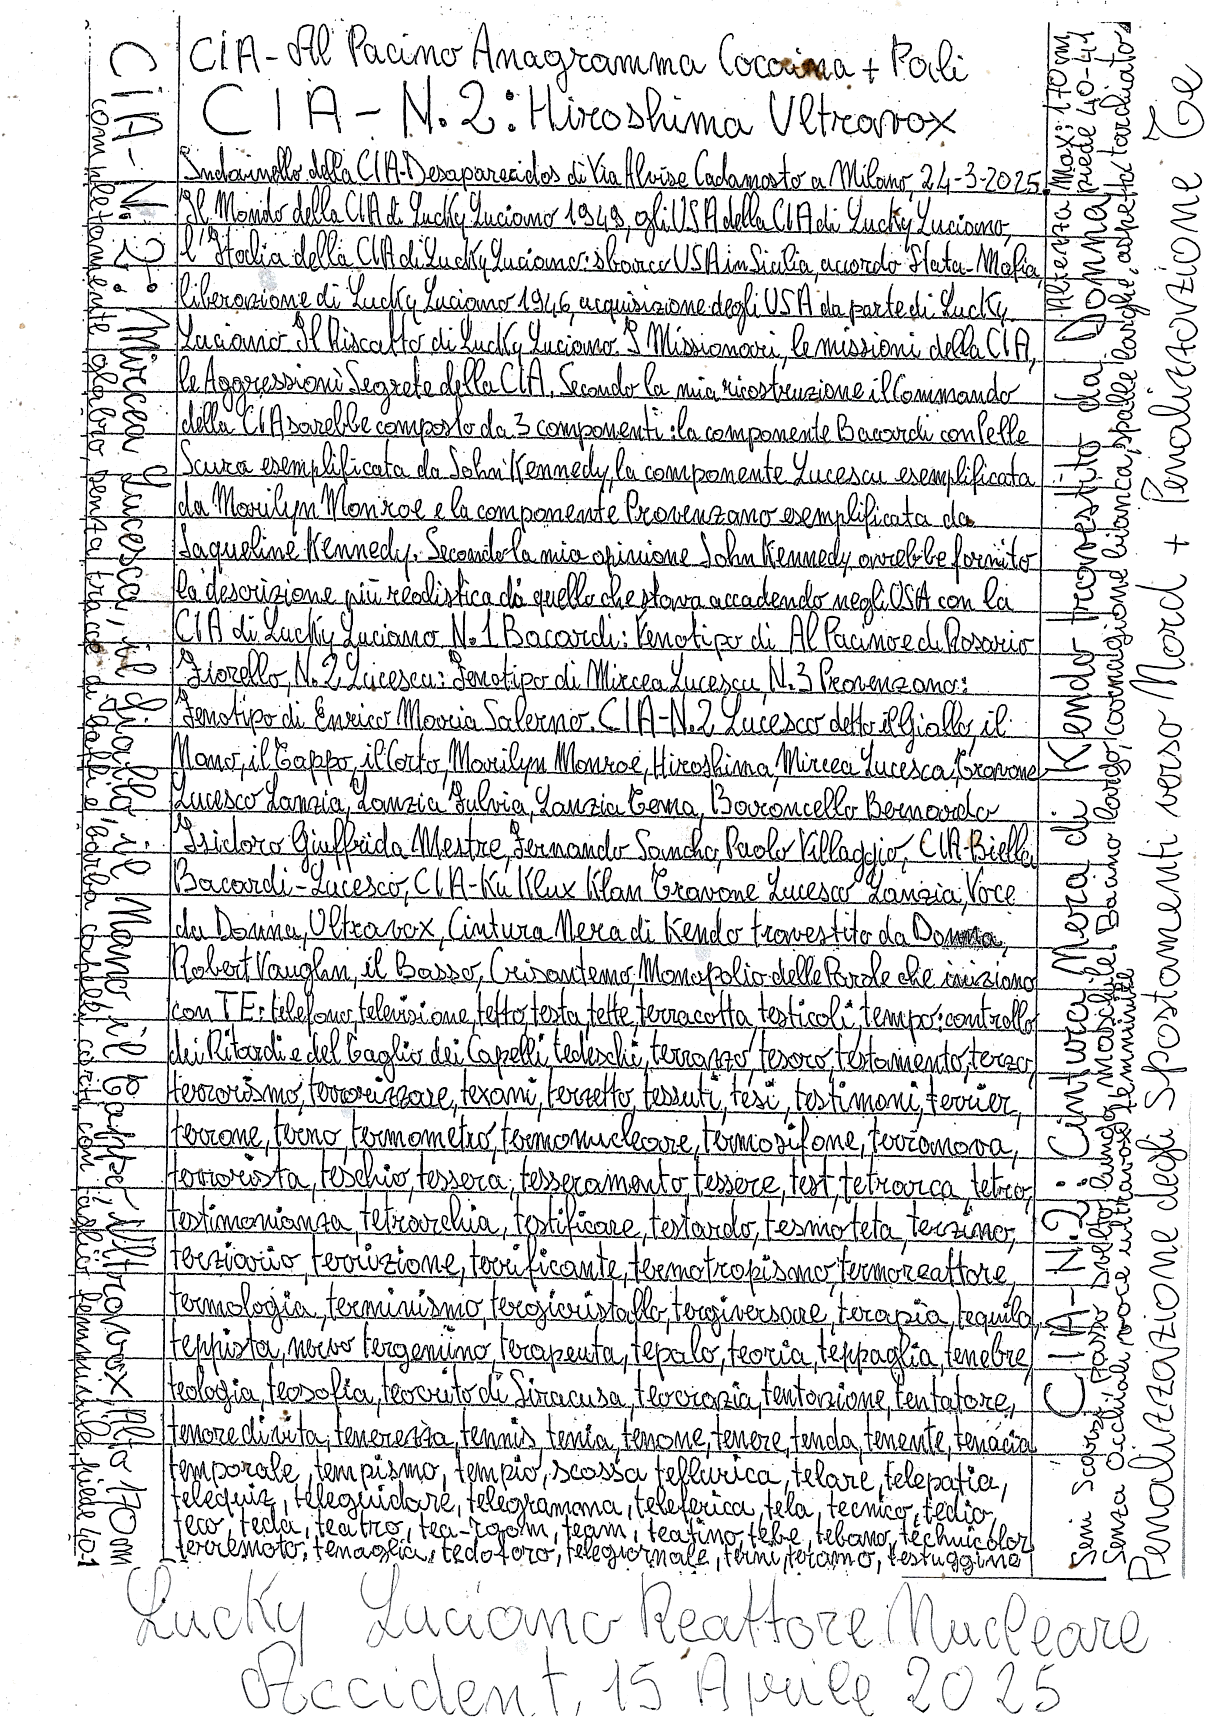 CIA - Al Pacino Anagramma Cocaina + Pali
CIA - N.2: Hiroshima Ultravox
Indovinello della CIA-Desaparecidos di Via Alvise Cadamosto a Milano, 24-3-2025.
Il Mondo della CIA di Lucky Luciano 1949, gli USA della CIA di Lucky Luciano,
l'Italia della CIA di Lucky Luciano: sbarco USA in Sicilia, accordo Stato-Mafia,
liberazione di Lucky Luciano 1946, acquisizione degli USA da parte di Lucky
Luciano. Il Riscatto di Lucky Luciano. I Missionari, le missioni della CIA,
le Aggressioni Segrete della CIA. Secondo la mia ricostruzione il Commando
della CIA sarebbe composto da 3 componenti: la componente Bacardi con Pelle
Scura esemplificata da John Kennedy, la componente Lucescu esemplificata
da Marilyn Monroe e la componente Provenzano esemplificata da
Jaqueline Kennedy. Secondo la mia opinione John Kennedy avrebbe fornito
la descrizione più realistica di quello che stava accadendo negli USA con la
CIA di Lucky Luciano N.1 Bacardi: Fenotipo di Al Pacino e di Rosario
Fiorello, N.2 Lucescu: Fenotipo di Mircea Lucescu, N.3 Provenzano:
Fenotipo di Enrico Maria Salerno. CIA-N.2 Lucesco detto il Giallo, il
Nano, il Tappo, il Corto, Marilyn Monroe, Hiroshima, Mircea Lucesca, Travone
Lucesco Lanzia, Lanzia Fulvia, Lanzia Tema, Baroncello Bernardo
Isidoro Giuffrida Mestre, Fernando Sancho, Paolo Villaggio, CIA-Biella
Bacardi-Lucesco, CIA-Ku Klux Klan Travone Lucesco Lanzia, Voce
da Donna, Ultravox, Cintura Nera di Kendo travestito da Donna,
Robert Vaughn, il Basso, Crisantemo, Monopolio delle Parole che iniziano
con TE: telefono, televisione, tetto, testa, tette, terracotta, testicoli, tempo: controllo
dei Ritardi e del Taglio dei Capelli, tedeschi, terrazzo, tesoro, testamento, terzo,
terrorismo, terrorizzare, texani, terzetto, tessuti, tesi, testimoni, terrier,
terrone, terno, termometro, termonucleare, termosifone, terranova,
terrorista, teschio, tessera, tesseramento, tessere, test, tetrarca, tetro,
testimonianza, tetrarchia, testificare, testardo, tesmoteta, terzino,
terziario, terrizione, terrificante, termotropismo, termoreattore,
termologia, terminismo, tergicristallo, tergiversare, terapia, tequila,
teppista, nervo tergemino, terapeuta, tepalo, teoria, teppaglia, tenebre,
teologia, teosofia, teocrito di Siracusa, teocrazia, tentazione, tentatore,
tenore di vita, tenerezza, tennis, tenia, tenone, tenere, tenda, tenente, tenacia
temporale, tempismo, tempio, scossa tellurica, telare, telepatia,
telequiz, teleguidare, telegramma, teleferica, tela, tecnico, tedio,
teco, teda, teatro, tea-room, team, teatino, tebe, tebano, technicolor
terremoto, tenaglia, tedoforo, telegiornale, terni, teramo, testuggine
CIA-N.2: Mircea Lucesca, il Giallo, il Nano, il Tappo, Ultravox, Alto 170m
completamente glabro, senza tracce di baffi e barba, capelli corti con taglio femminile, piede 40-1
Altezza Max: 170m
CIA-N.2: Cintura Nera di Kendo travestito da Donna, piede 40-41
Seni Scarsi, passo svelto, Bacino largo, carnagione bianca, spalle larghe, aspetto tarchiato
Senza Occhiali, voce ultravox femminile
Penalizzazione degli Spostamenti verso Nord + Penalizzazione Te
Lucky Luciano Reattore Nucleare
Accident, 15 Aprile 2025